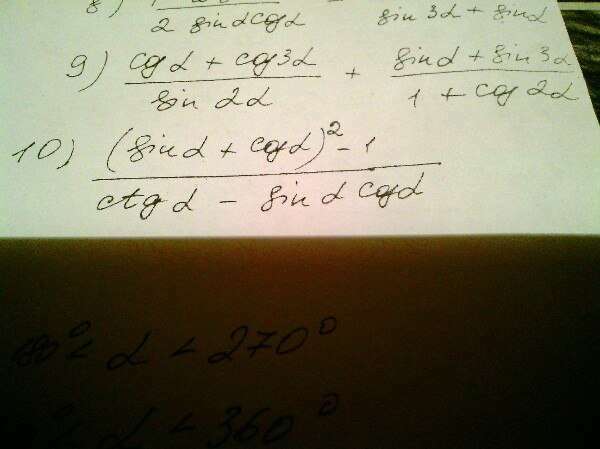 8)
2 sinα cosα sin 3α + sinα
9) (cosα + cos3α)/(sin 2α) + (sinα + sin 3α)/(1 + cos 2α)
10) ((sinα + cosα)² - 1)/(ctgα - sinα cosα)
180° < α < 270°
° < α < 360°